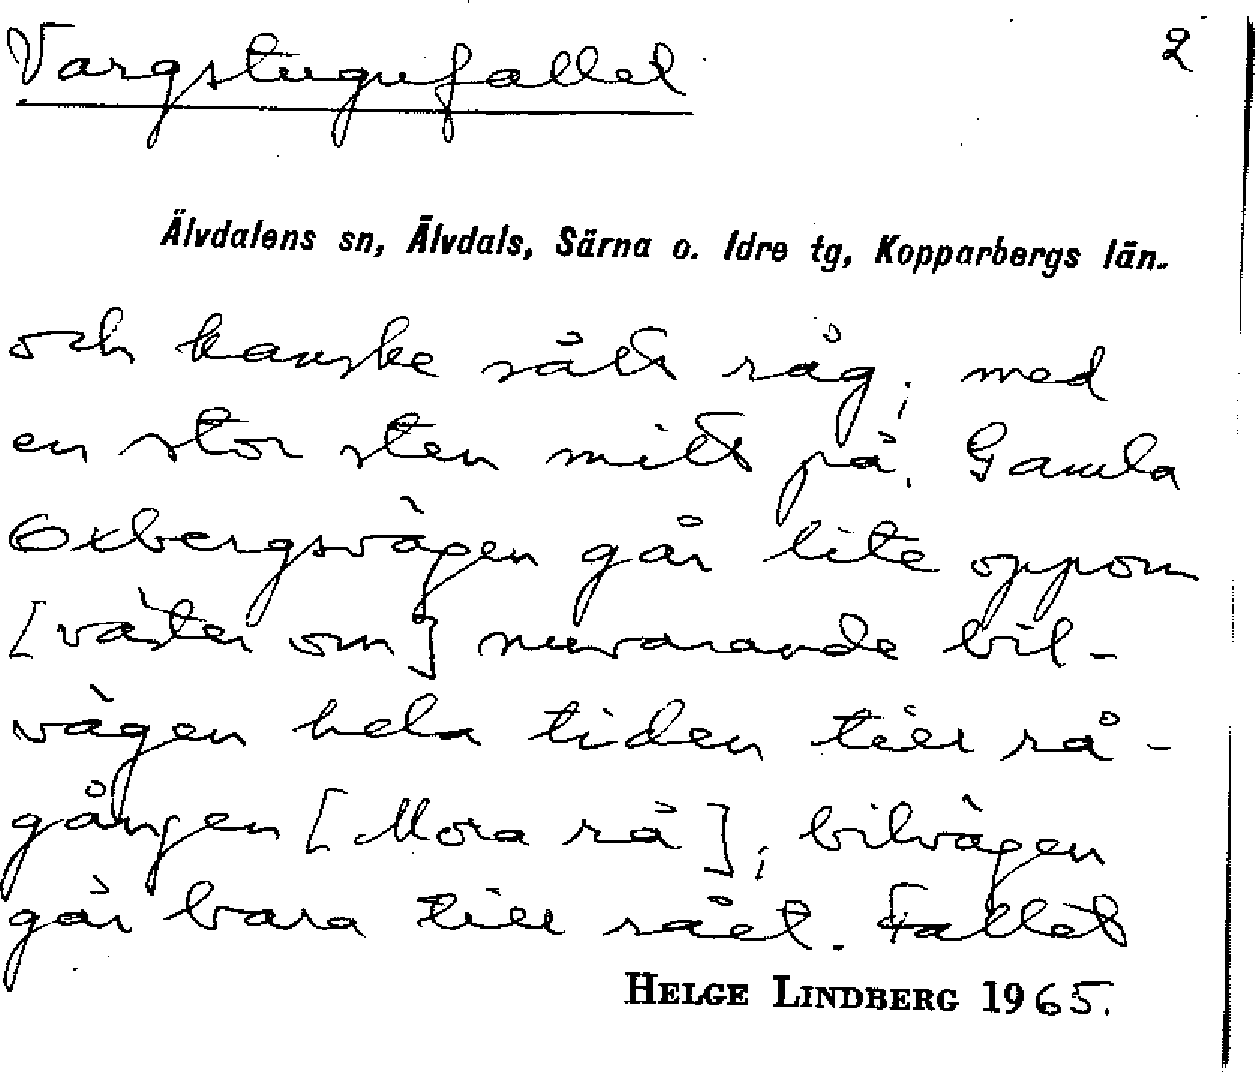 Vargstugufallet
2
Älvdalens sn, Älvdals, Särna o. Idre tg, Kopparbergs län.
och kanske sått råg; med
en stor sten mitt på. Gamla
Oxbergsvägen går lite oppom
[väster om] nuvarande bil-
vägen hela tiden till rå-
gången [Mora rå]; bilvägen
går bara till rået. Fallet
HELGE LINDBERG 1965.